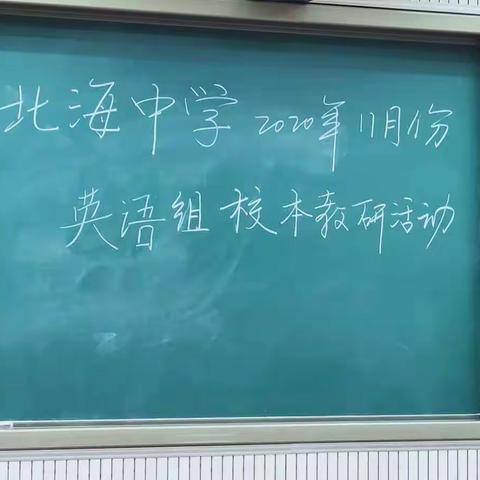 北海中学2020年11月份
英语组校本教研活动